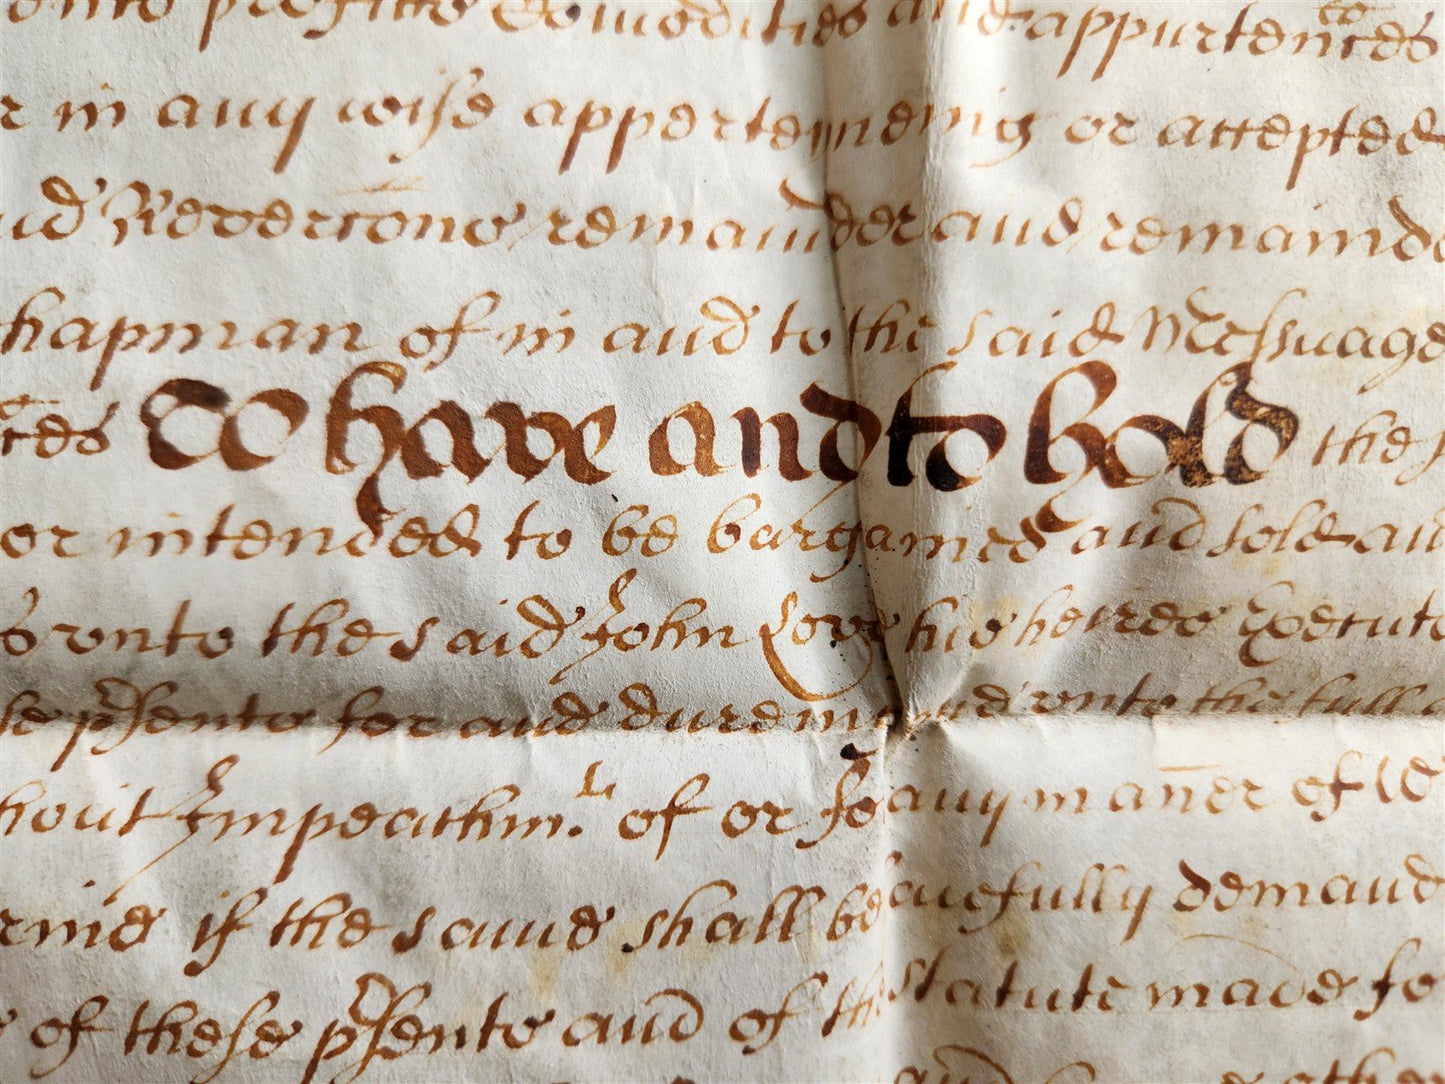 onto proffitts Comodities and appurtenñces
r in any wise apperteyneing or accepted
nd Revercõns remainder and remainde
hapman of in and to the said Messuage
ces To have and to hold the p
or intended to be bargained and sold an
s unto the said John Love his heires Executo
se p'sents for and dureing and unto the full
hout Impeachm.t of or for any mañer of
rme if the same shall be lawfully demand
of these p'sents and of the Statute made fo